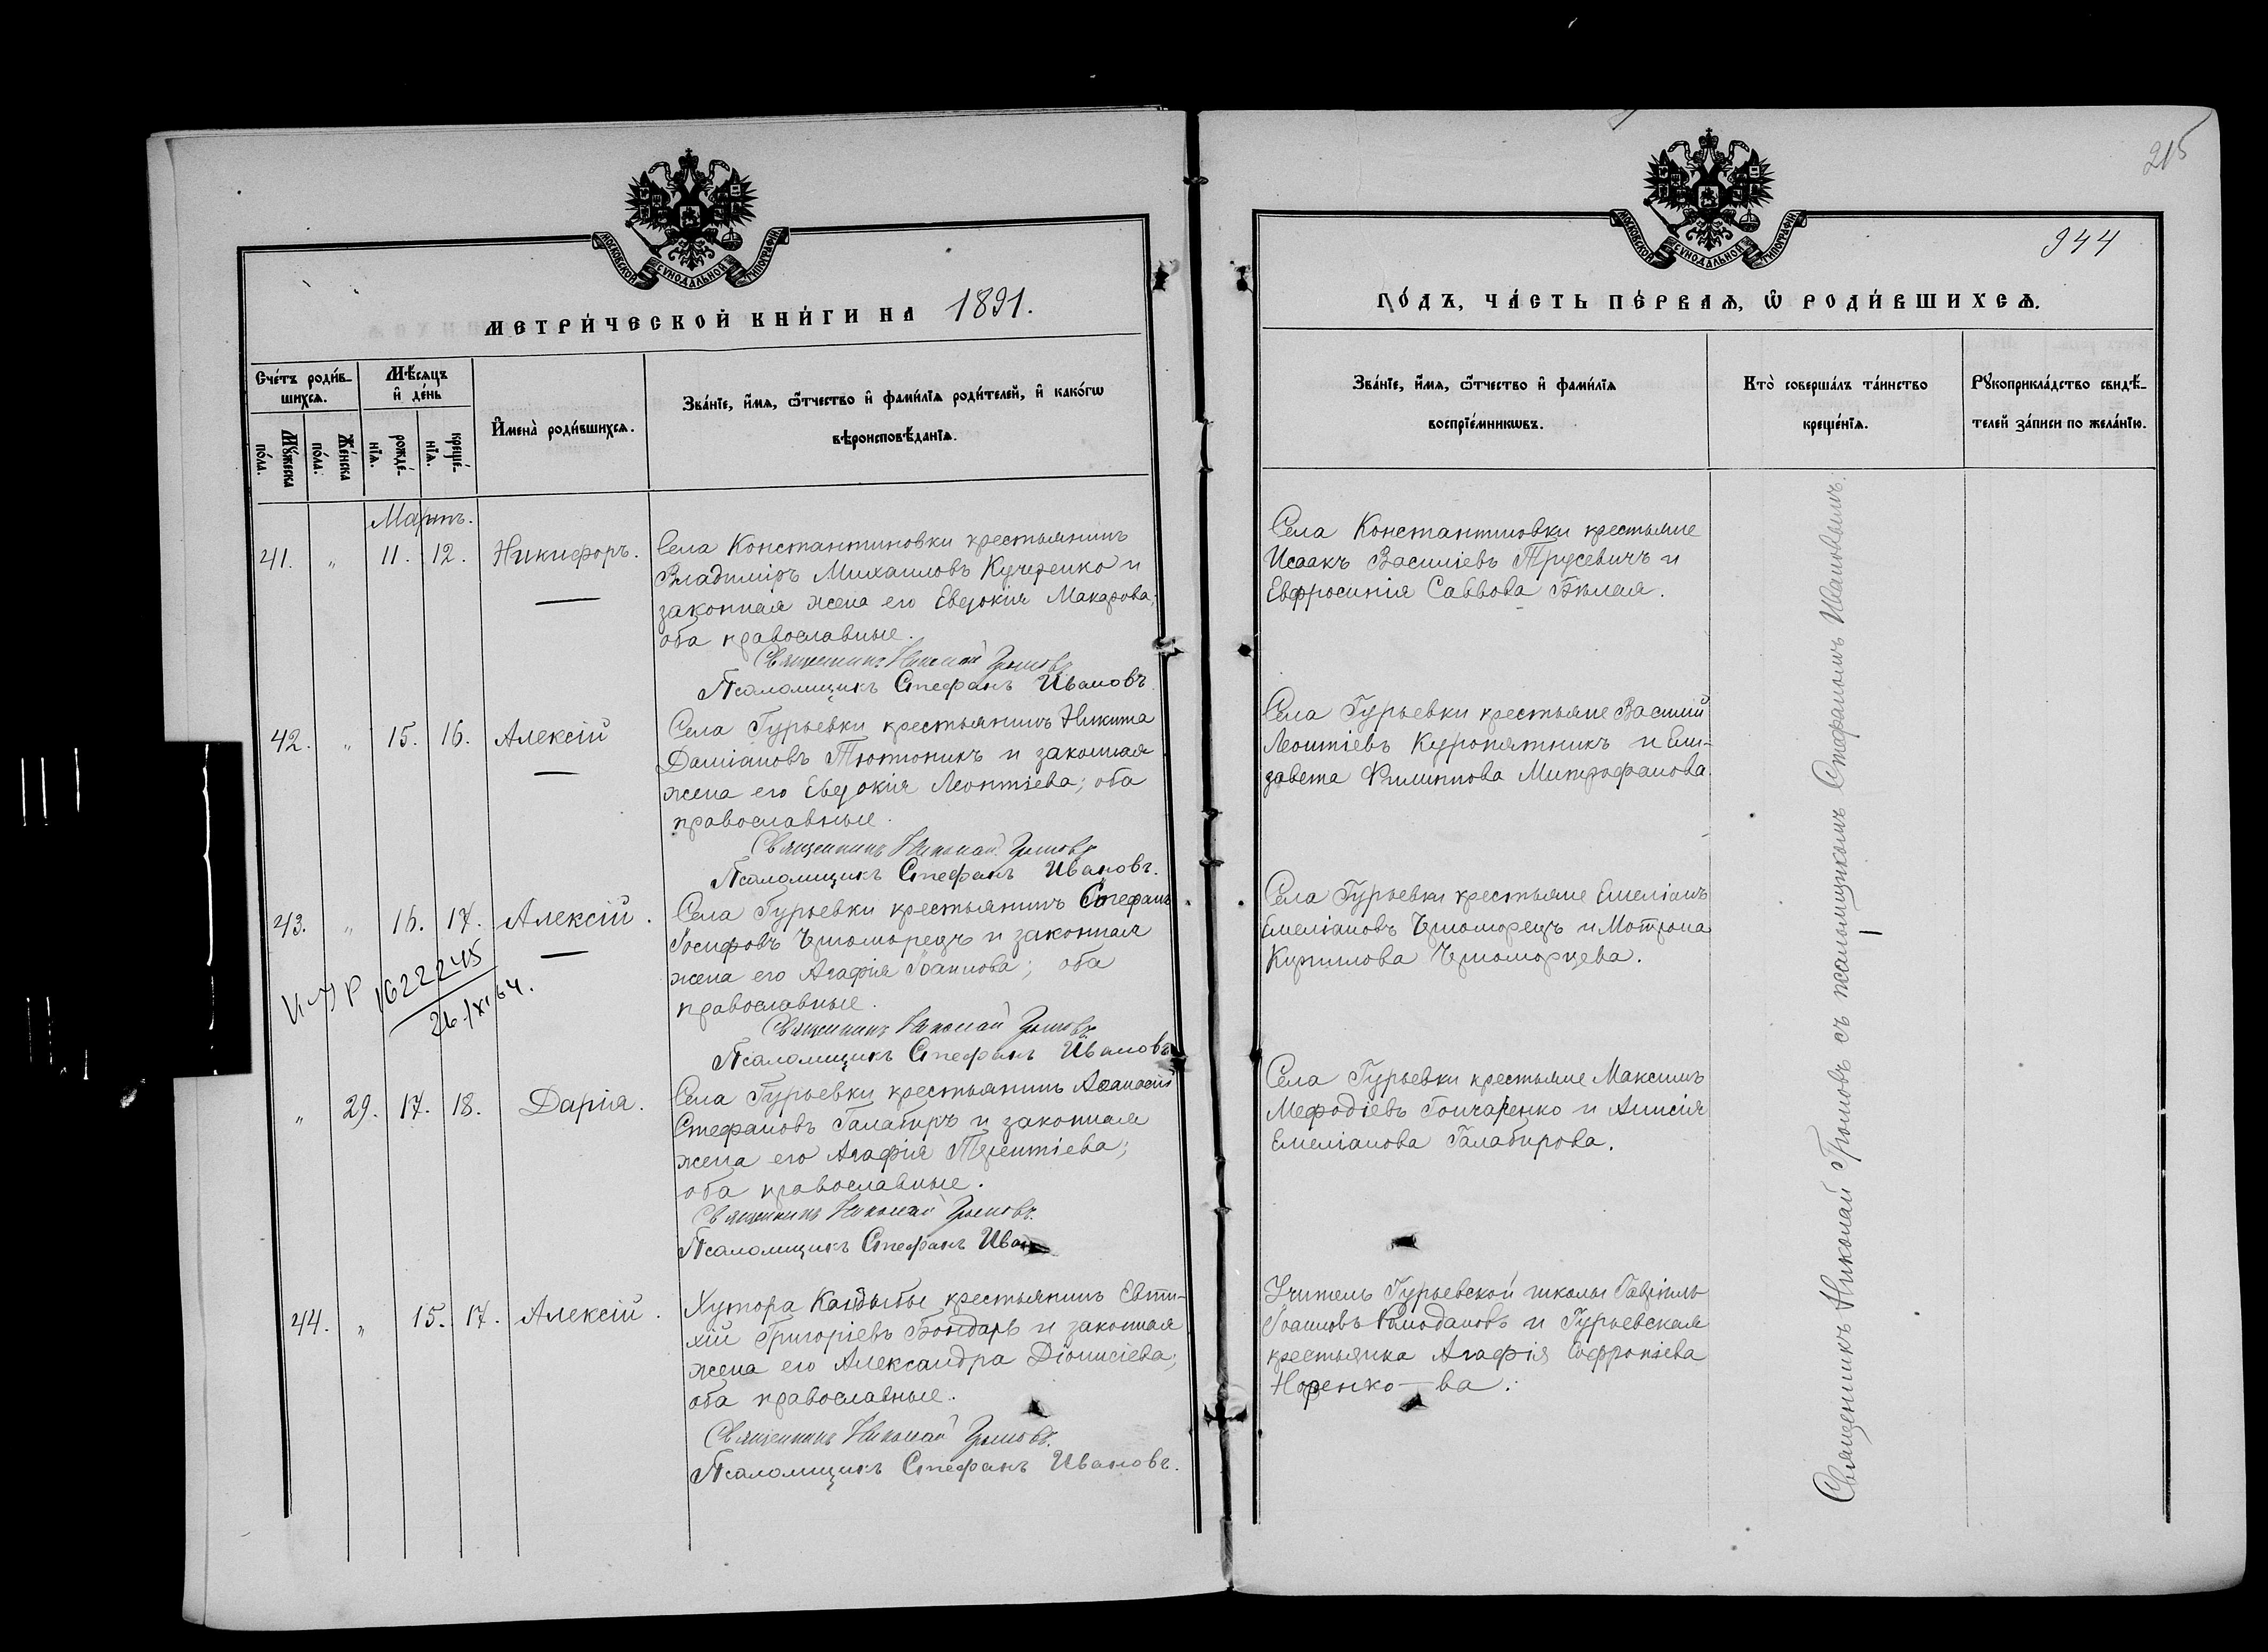 215
944
МОСКОВСКОЙ СѴНОДАЛЬНОЙ ТИПОГРАФІИ
МЕТРИ́ЧЕСКОЙ КНИ́ГИ НА 1891.
Сче́тъ роди́в-
шихсѧ.
Мѣ́сѧцъ
и҆ де́нь
И҆мена̀ роди́вшихсѧ.
Зва́нїе, и҆́мѧ, ѻ҆́тчество и҆ фами́лїѧ роди́телей, и҆ како́гѡ
вѣроисповѣ́данїѧ.
Мꙋ́жеска по́ла.
Же́нска по́ла.
рожде́-нїѧ.
креще́-нїѧ.
Мартъ.
41. " 11. 12. Никифоръ.
Села Константиновки крестьянинъ
Владиміръ Михаиловъ Кучеренко и
законная жена его Евдокія Макарова;
оба православные.
Священникъ Николай Громовъ
Псаломщикъ Стефанъ Ивановъ.
42. " 15. 16. Алексій
Села Гурьевки крестьянинъ Никита
Даміановъ Тютюникъ и законная
жена его Евдокія Леонтіева; оба
православные.
Священникъ Николай Громовъ
Псаломщикъ Стефанъ Ивановъ.
43. " 16. 17. Алексій.
Села Гурьевки крестьянинъ Стефанъ
Іосифовъ Черноморецъ и законная
жена его Агафія Іоаннова; оба
православные.
Священникъ Николай Громовъ
Псаломщикъ Стефанъ Ивановъ
1622245
26/XI 64.
" 29. 17. 18. Дарія.
Села Гурьевки крестьянинъ Аѳанасій
Стефановъ Галабиръ и законная
жена его Агафія Терентіева;
оба православные.
Священникъ Николай Громовъ.
Псаломщикъ Стефанъ Иван
44. " 15. 17. Алексій.
Хутора Кандыбы крестьянинъ Евти-
хій Григоріевъ Бондарь и законная
жена его Александра Діонисіева;
оба православные.
Священникъ Николай Громовъ.
Псаломщикъ Стефанъ Ивановъ.
МОСКОВСКОЙ СѴНОДАЛЬНОЙ ТИПОГРАФІИ
ГО́ДЪ, ЧА́СТЬ ПЕ́РВАѦ, Ѡ҆ РОДИ́ВШИХСѦ.
Зва́нїе, и҆́мѧ, ѻ҆́тчество и҆ фами́лїѧ
воспрїе́мникѡвъ.
Кто̀ соверша́лъ та́инство
креще́нїѧ.
Рꙋкоприкла́дство свидѣ́-
телей за́писи по жела́нїю.
Села Константиновки крестьяне
Исаакъ Василіевъ Трусевичъ и
Евфросинія Саввова Бѣлая.
Села Гурьевки крестьяне Василій
Леонтіевъ Куропятникъ и Ели-
завета Филиппова Митрофанова.
Села Гурьевки крестьяне Емеліанъ
Емеліановъ Черноморецъ и Мотрона
Кириллова Черноморцева.
Села Гурьевки крестьяне Максимъ
Мефодіевъ Гончаренко и Анисія
Емеліанова Галабирова.
Учитель Гурьевской школы Гавріилъ
Іоанновъ Рамодановъ и Гурьевская
крестьянка Агафія Софроніева
Норенко-ва.
Священникъ Николай Громовъ съ псаломщикомъ Стефаномъ Ивановымъ.